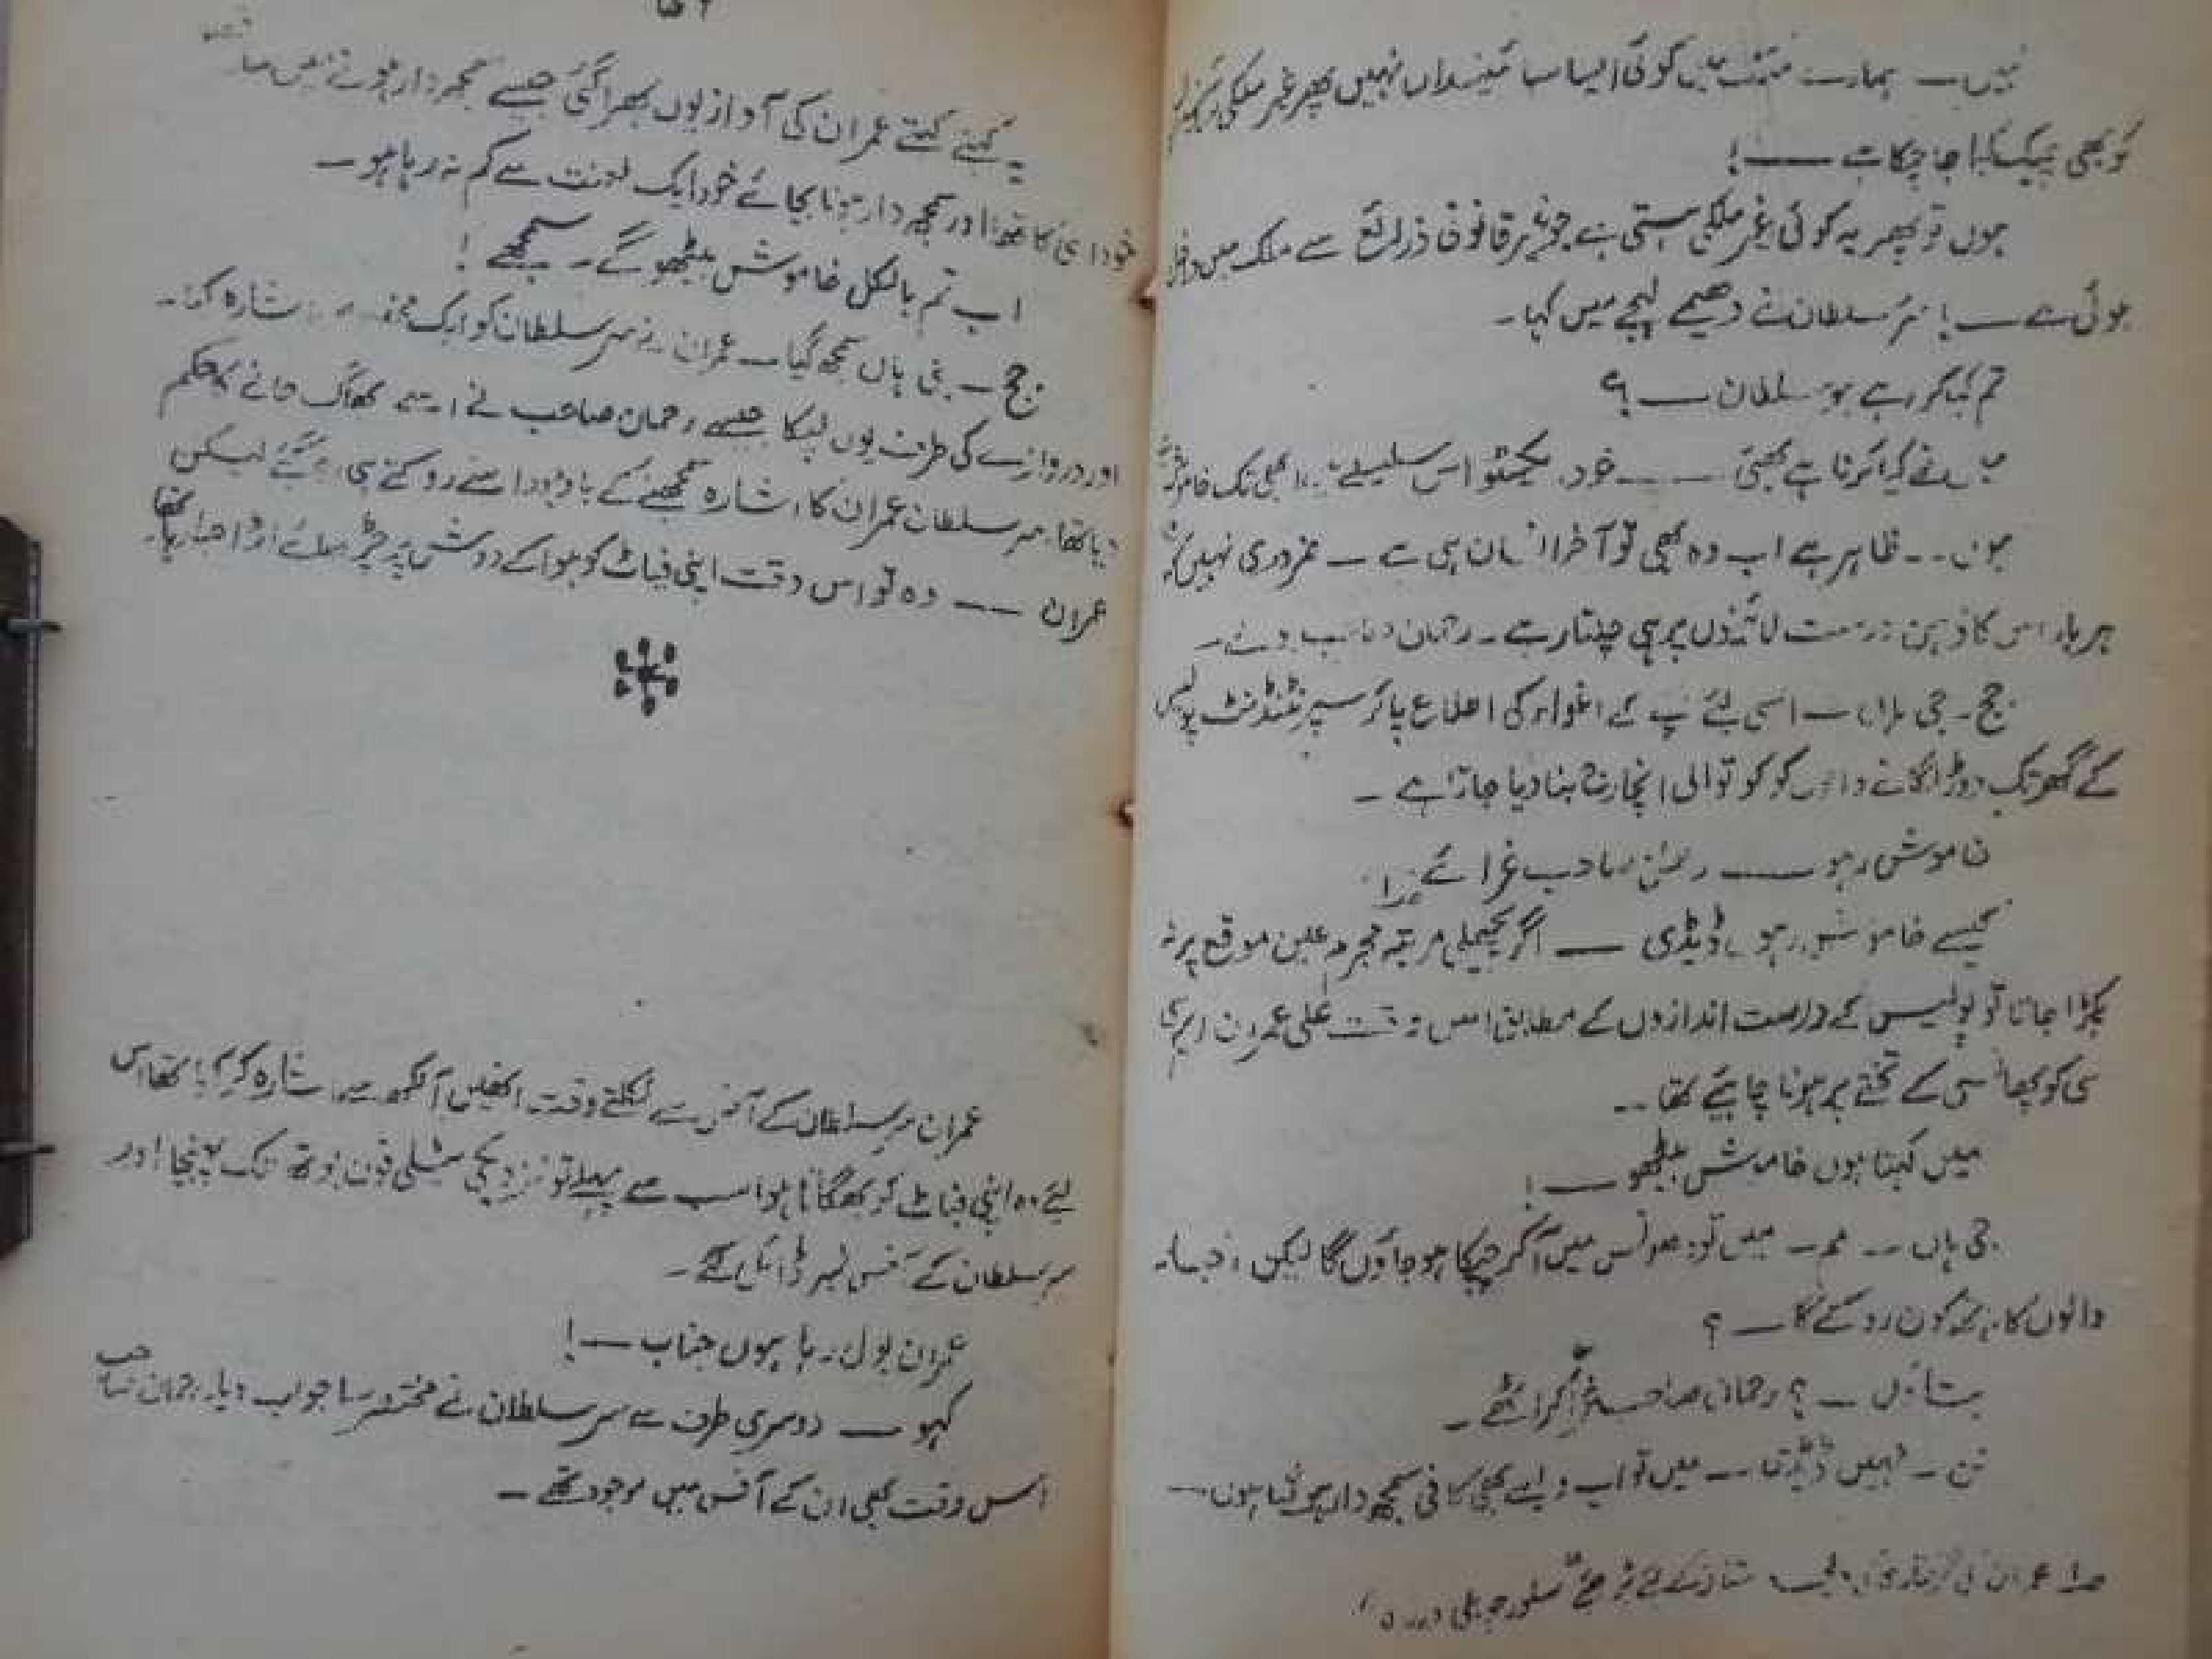 نہیں — ہمارے ملک میں کوئی ایسا سائنسداں نہیں پھر غیر ملکی
کو بھی چیک کیا جا چکا ہے —— !
ہوں تو پھر یہ کوئی غیر ملکی ہستی ہے جو غیر قانونی ذرائع سے ملک میں داخل
ہوئی ہے — ! سر سلطان نے دھیمے لہجے میں کہا۔
تم کیا کر رہے ہو سلطان — ؟
میں نے کیا کرنا ہے بھئی —— خود ایکسٹو اس سلسلے ابھی تک خاموش
ہوں -- ظاہر ہے اب وہ بھی تو آخر انسان ہی ہے — ضروری نہیں کہ
ہر بار اس کا ذہن درست لائنوں پر ہی چلتا رہے ۔ رحمان صاحب بولے۔
جج ۔ جی ہاں — اسی لئے کے اغواء کی اطلاع پا کر سپرنٹنڈنٹ پولیس
کے گھر تک دوڑ لگانے والوں کو کوتوالی انچارج بنا دیا جاتا ہے ۔
خاموش رہو —— رحمٰن صاحب غرائے
کیسے خاموش رہوں ڈیڈی — اگر پچھلی مرتبہ مجرم عین موقع پر نہ
پکڑا جاتا تو پولیس کے درست اندازوں کے مطابق اس وقت علی عمران ایم
سی کو پھانسی کے تختے پر ہونا چاہیئے تھا --
میں کہتا ہوں خاموش بیٹھو — !
جی ہاں -- مم — میں تو میں آ کر چپکا ہو جاؤں گا لیکن
والوں کا کون روکے گا — ؟
بتاؤں — ؟ رحمان صاحب غرا کر اٹھے ۔
نن — نہیں ڈیڈی — میں تو اب ویسے بھی کافی سمجھ دار ہو گیا ہوں —
عمران کی گرفتاری کے لئے پڑھئے
یہ کہتے کہتے عمران کی آواز یوں بھرا گئی جیسے سمجھ دار ہونے میں
اور سمجھ دار ہونا بجائے خود ایک لعنت سے کم نہ رہا ہو —
اب تم بالکل خاموش بیٹھو گے ۔ سمجھے !
جج — جی ہاں سمجھ گیا — عمران نے سر سلطان کو ایک اشارہ کیا ۔
اور دروازے کی طرف یوں لپکا جیسے رحمان صاحب نے اسے بھاگ جانے کا حکم
دیا تھا۔ سر سلطان عمران کا اشارہ سمجھنے کے باوجود اسے روکتے ہی رہ گئے لیکن
عمران —— وہ تو اس وقت اپنی فیاٹ کو ہوا کے دوش پر چڑھائے اڑا جا رہا تھا
عمران سر سلطان کے آفس سے نکلتے وقت انھیں آنکھ سے اشارہ کر آیا تھا اس
لئے وہ اپنی فیاٹ کو بھگاتا ہوا سب سے پہلے تو نزدیکی ٹیلی فون بوتھ تک پہنچا اور
سر سلطان کے آفس نمبر ڈائل کئے ۔
عمران بول رہا ہوں جناب — !
کہو — دوسری طرف سے سر سلطان نے مختصر سا جواب دیا۔ رحمان صاحب
اس وقت بھی ان کے آفس میں موجود تھے —